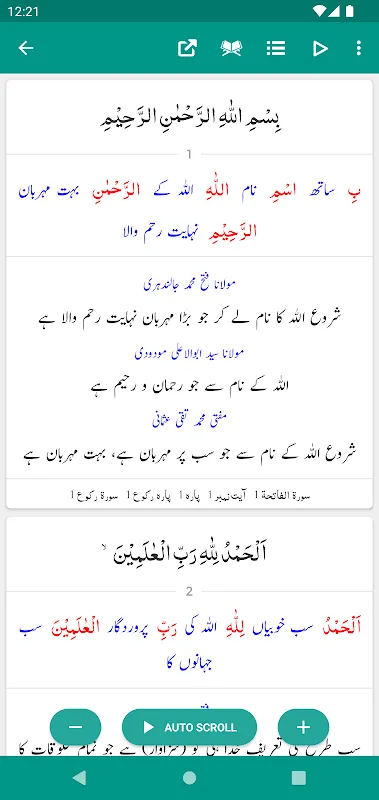 12:21
بِسْمِ اللهِ الرَّحْمٰنِ الرَّحِیْمِ
1
بِ ساتھ اسْمِ نام اللهِ اللہ کے الرَّحْمٰنِ بہت مہربان
الرَّحِیْمِ نہایت رحم والا
مولانا فتح محمد جالندہری
شروع اللہ کا نام لے کر جو بڑا مہربان نہایت رحم والا ہے
مولانا سید ابوالاعلی مودودی
اللہ کے نام سے جو رحمان و رحیم ہے
مفتی محمد تقی عثمانی
شروع اللہ کے نام سے جو سب پر مہربان ہے، بہت مہربان ہے
سورة الفاتحة 1 آیت نمبر 1 پارہ 1 پارہ رکوع 1 سورة رکوع 1
اَلْحَمْدُ لِلّٰهِ رَبِّ الْعٰلَمِیْنَ ۙ
2
اَلْحَمْدُ سب خوبیاں لِلّٰهِ اللہ کی رَبِّ پروردگار الْعٰلَمِیْنَ سب
جہانوں کا
AUTO SCROLL
سب طرح کی تعریف خدا ہی کو (سزاوار) ہے جو تمام مخلوقات کا